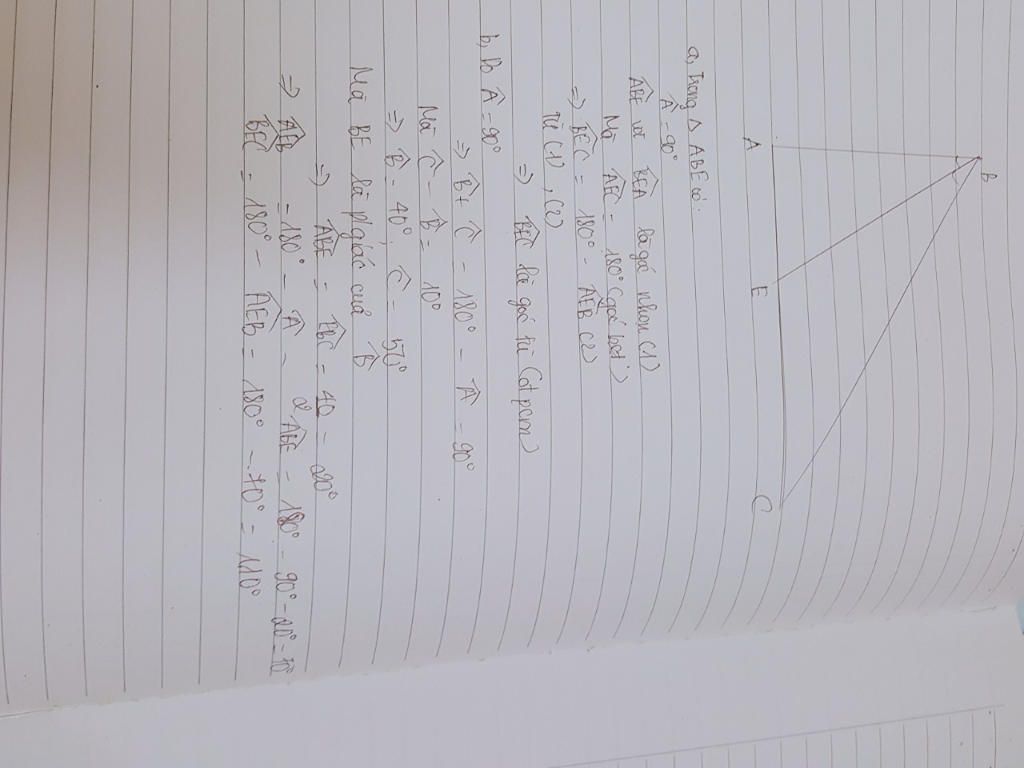 B
A E C
a, Trong △ ABE có:
Â = 90°
ABE và BEA là góc nhọn (1)
Mà AEC = 180° (góc bẹt)
=> BEC = 180° - AEB (2)
Từ (1), (2)
=> BEC là góc tù (đpcm)
b, Â = 90°
=> B + C = 180° - Â = 90°
Mà C - B = 10°
=> B = 40°, C = 50°
Mà BE là p/giác của B
=> ABE = EBC = 40/2 = 20°
=> AEB = 180° - Â - ABE = 180° - 90° - 20° = 70°
BEC = 180° - AEB = 180° - 70° = 110°